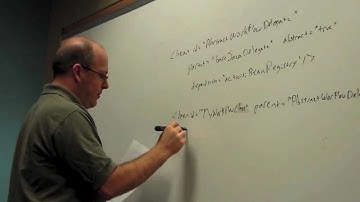 <bean id="AbstractWorkflowDelegate"
parent="baseJavaDelegate" abstract="true"
depends-on="activitiBeanRegistry"/>
<bean id="MyWorkflow parent="AbstractWorkflowDel